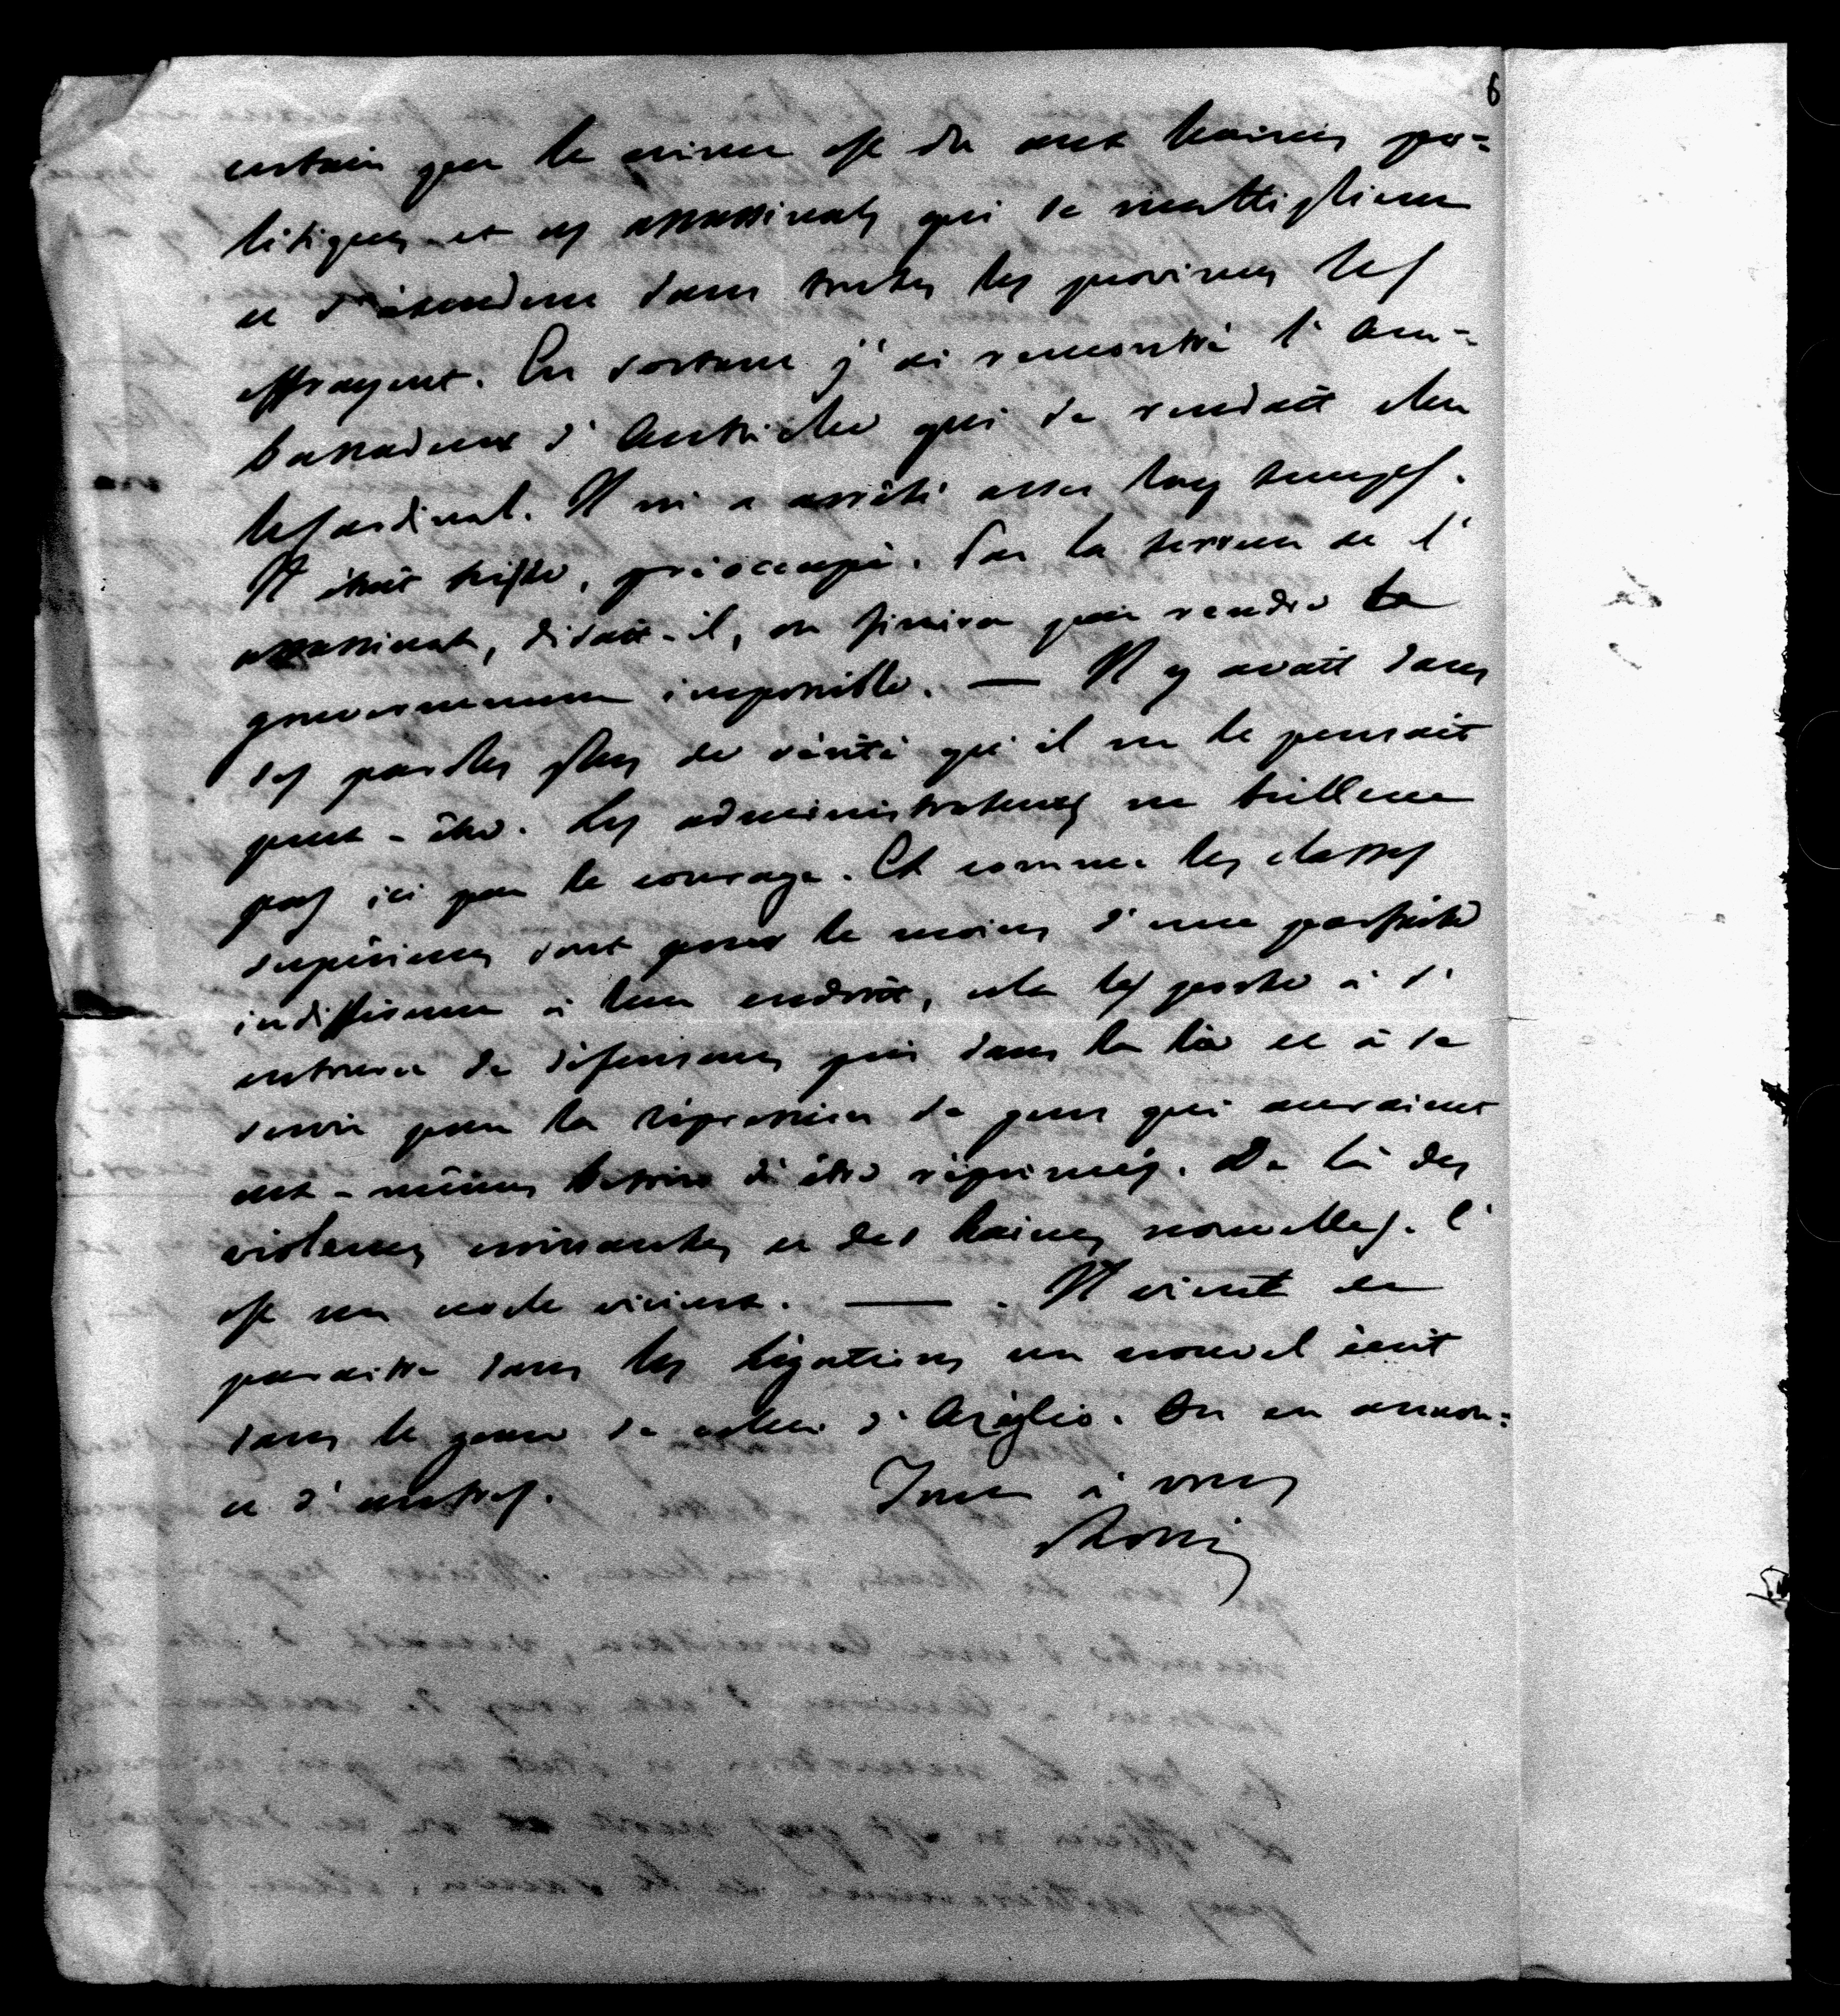 6
certain que le crime est du aux haines po=
litiques et ces assassinats qui se multiplient
et s'étendent dans toutes les provinces les
effrayent. En sortant j'ai rencontré l'Am-
bassadeur d'Autriche qui se rendait chez
le Cardinal. Il m'a arrêté assez long temps.
Il était triste, préoccupé. Par la terreur de l'
assassinat, disait-il, on finira par rendre le
gouvernement impossible. — Il y avait dans
ses paroles plus de vérité qu'il ne le pensait
peut-être. Les administrateurs ne brillent
pas ici par le courage. Et comme les classes
supérieures sont pour le moins d'une parfaite
indifférence à leur endroit, cela les porte à s'
entourer de défenseurs pris dans la lie et à se
servir pour la répression de gens qui auraient
eux-mêmes besoin d'être réprimés. De là des
violences croissantes et des haines nouvelles. C'
est un cercle vicieux. — . Il vient de
paraître dans les légations un nouvel écrit
dans le genre de celui d'Azeglio. On en annon=
ce d'autres. Tout à vous
Rossi